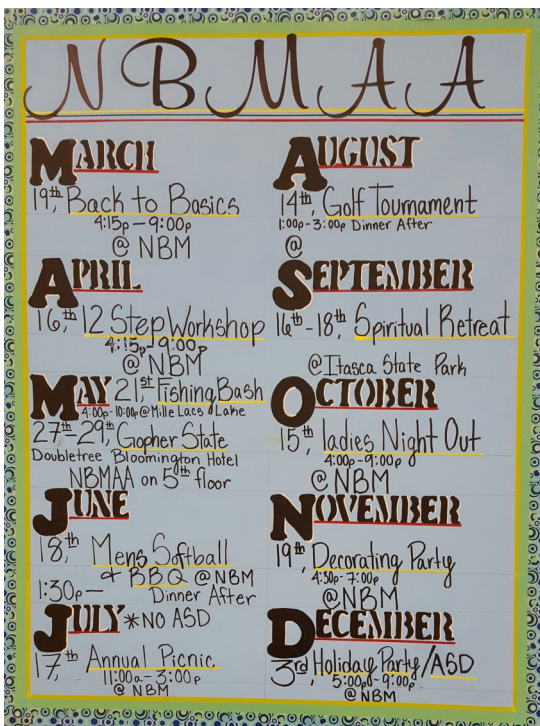 NBMAA
MARCH
19th, Back to Basics
4:15p - 9:00p
@ NBM
APRIL
16th, 12 Step Workshop
4:15p - 9:00p
@ NBM
MAY 21st Fishing Bash
4:00p - 10:00p @ Mille Lacs Lake
27th - 29th, Gopher State
Doubletree Bloomington Hotel
NBMAA on 5th floor
JUNE
18th, Mens Softball
+ BBQ @NBM
1:30p — Dinner After
JULY *NO ASD
17th Annual Picnic
11:00a - 3:00p
@ NBM
AUGUST
14th, Golf Tournament
1:00p - 3:00p Dinner After
@
SEPTEMBER
16th - 18th, Spiritual Retreat
@Itasca State Park
OCTOBER
15th, ladies Night Out
4:00p - 9:00p
@NBM
NOVEMBER
19th, Decorating Party
4:30p - 7:00p
@NBM
DECEMBER
3rd, Holiday Party/ASD
5:00p - 9:00p
@NBM